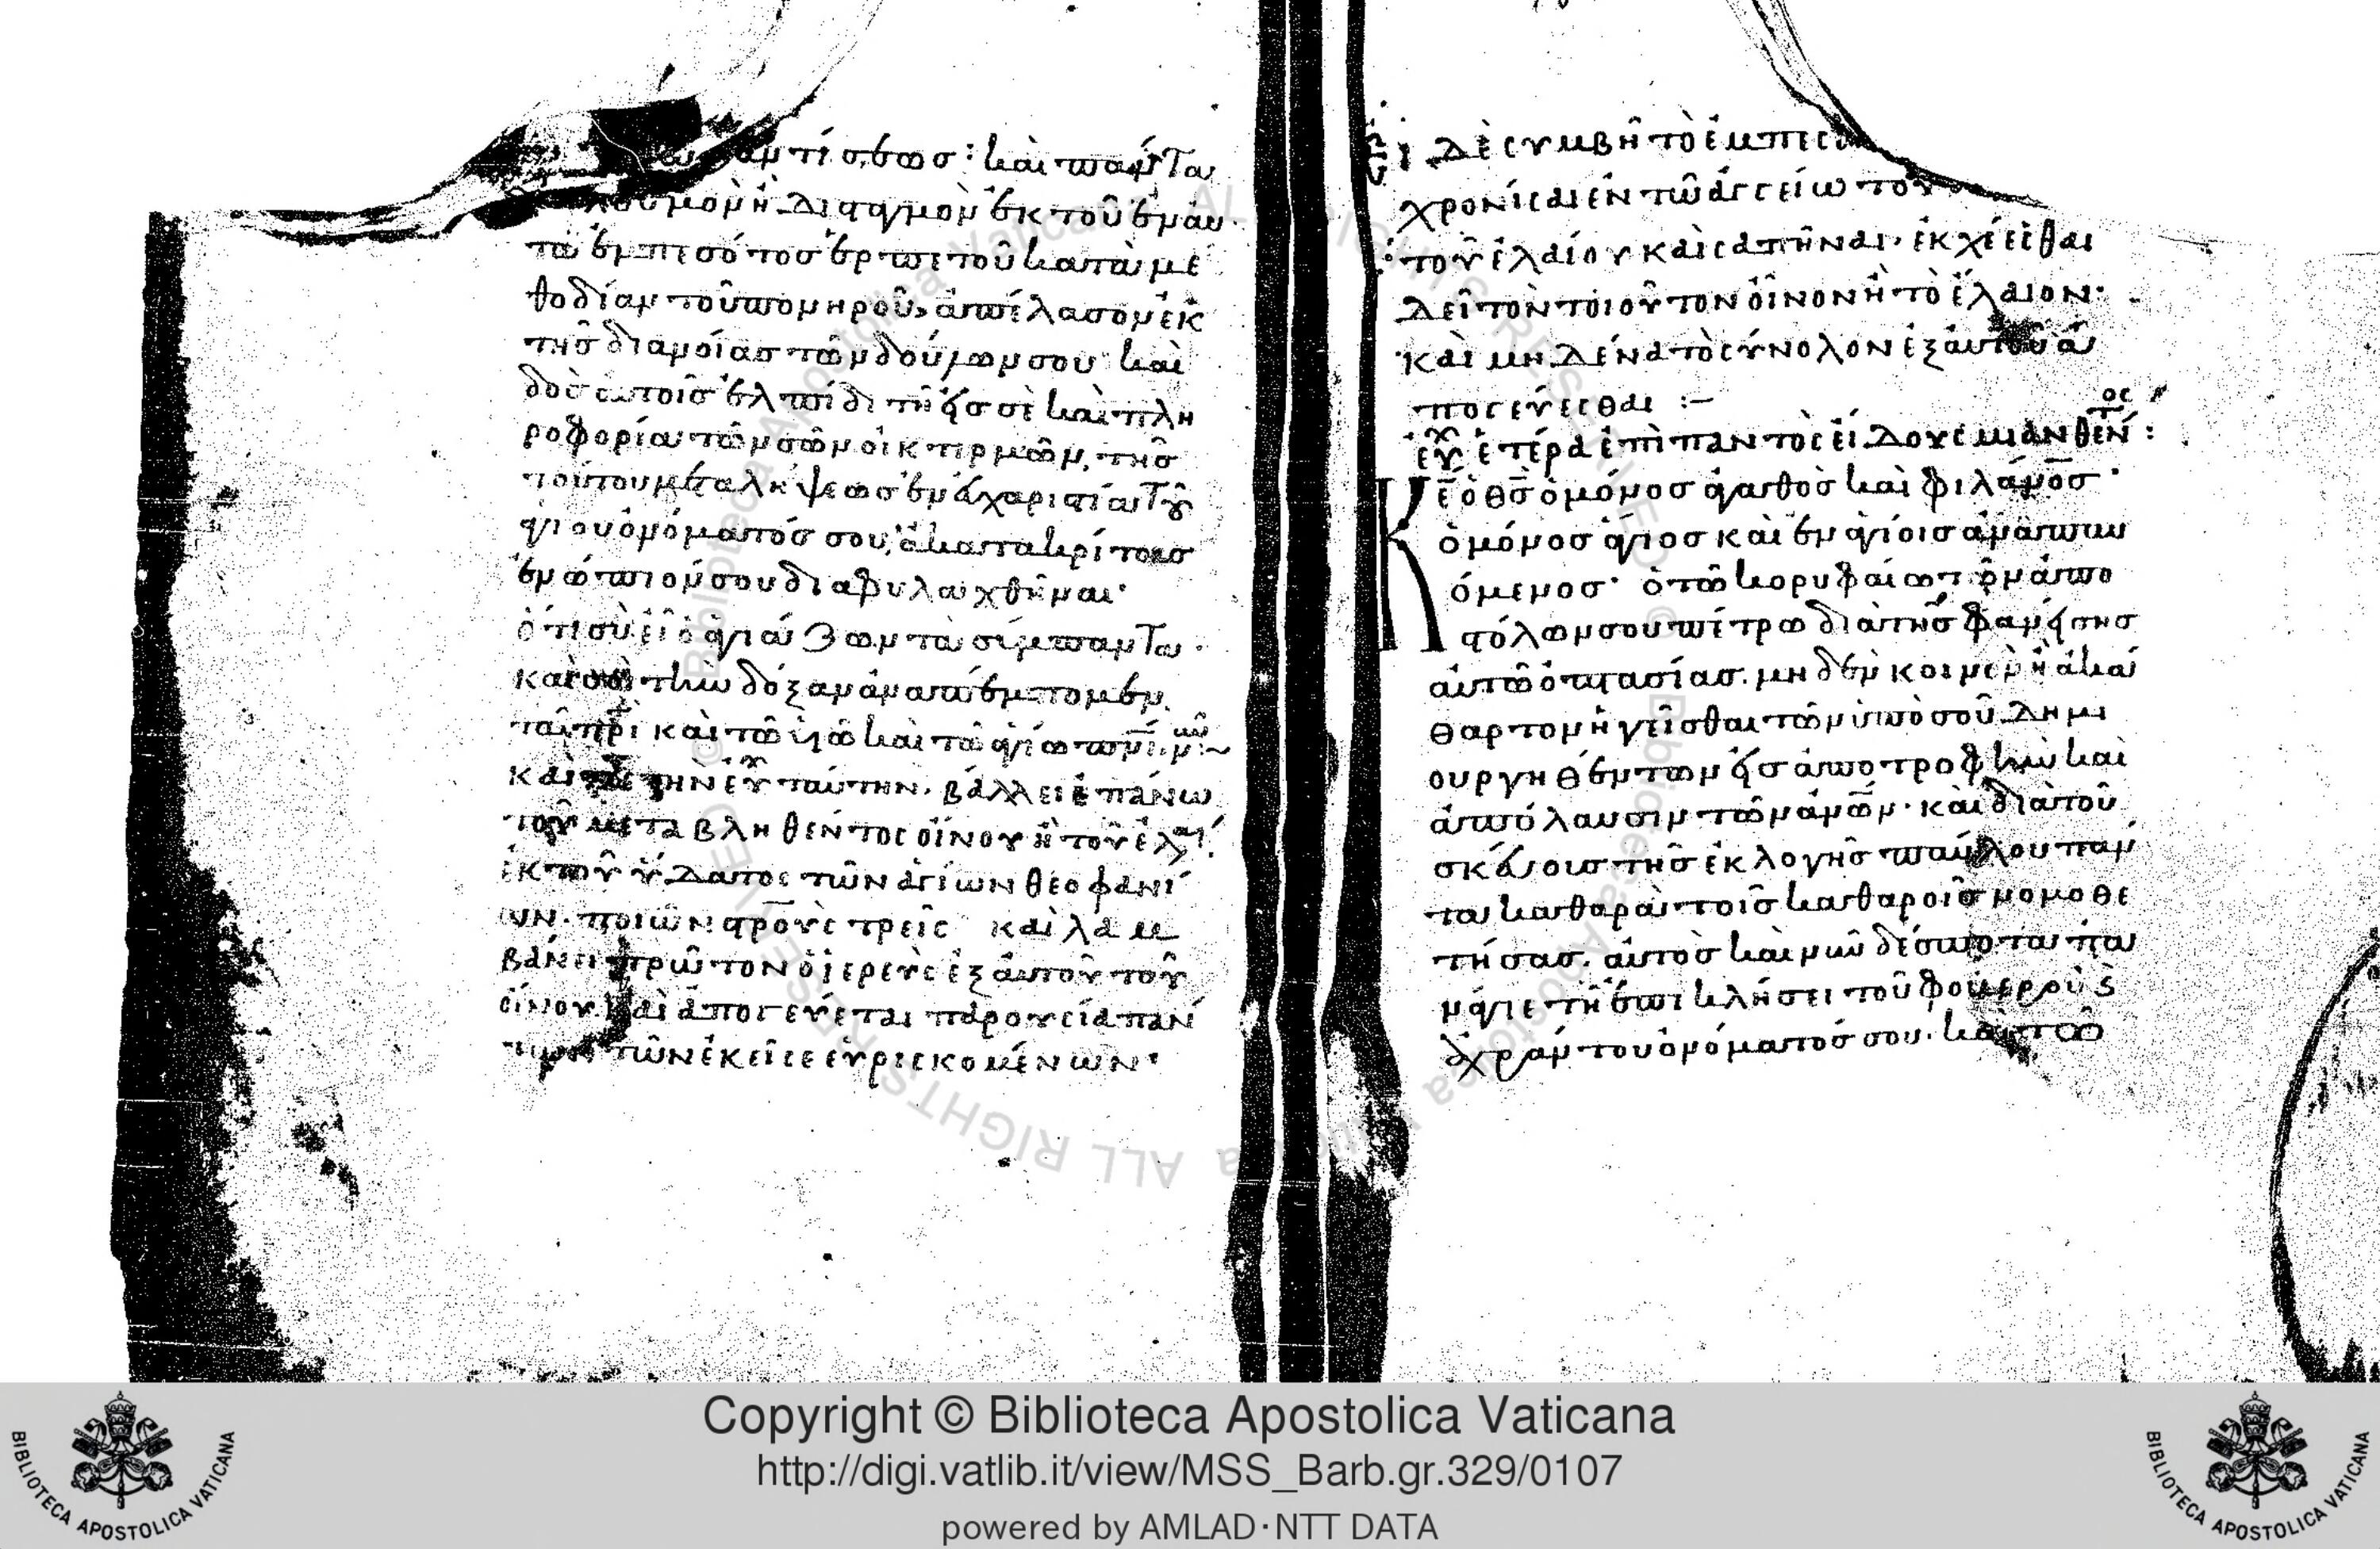 αντισεως: και παντα
μον ἢ διαγμὸν ἐκ τοῦ ἐν αυ
τῶ ἐμπεσότος ἑρπετοῦ κατὰ με
θοδίαν τοῦ πονηροῦ, ἀπέλασον ἐκ
τῆς διανοίας τῶν δούλων σου· καὶ
δὸς αὐτοῖς ἐλπίδι τῆ εἰς σὲ καὶ πλη
ροφορία τῶν σῶν οἰκτιρμῶν, τῆς
τούτου μεταλήψεως ἐν εὐχαριστία τοῦ
ἁγίου ὀνόματός σου, ἀκατακρίτους
ἐνώπιόν σου διαφυλαχθῆναι·
ὅτι σὺ εἶ ὁ ἁγιάζων τὰ σύμπαντα·
καὶ σοὶ τὴν δόξαν ἀναπέμπομεν
τῶ πρι καὶ τῶ υἱῶ καὶ τῶ ἁγίω πνι. νῦν
τὴν εὐχ ταύτην. βάλλει ἐπάνω
τοῦ μεταβληθέντος οἴνου ἢ τοῦ ἐλαί
ἐκ τοῦ ὕδατος τῶν ἁγίων θεοφανί
ων. ποιῶν στρους τρεῖς καὶ λαμ
βάνει πρῶτον ὁ ἱερεὺς ἐξ αὐτοῦ τοῦ
οἴνου καὶ ἀπογεύεται παρουσία πάν
των τῶν ἐκεῖσε εὑρισκομένων·
Εἰ δὲ συμβῆ τὸ ἐμπεσὸ
χρονίσαι ἐν τῶ ἀγγείω του
τοῦ ἐλαίου καὶ σαπῆναι. ἐκχέεσθαι
δεῖ τὸν τοιοῦτον οἶνον ἢ τὸ ἔλαιον·
καὶ μηδένα τὸ σύνολον ἐξ αὐτοῦ ἀ
πογεύεσθαι :—
εὐχ ἑτέρα ἐπὶ παντὸς εἴδους μιανθέντος :
Κε ὁ θς ὁ μόνος ἀγαθὸς καὶ φιλανος·
ὁ μόνος ἅγιος καὶ ἐν ἁγίοις ἀναπαυ
όμενος· ὁ τῶ κορυφαίω τῶν ἀπο
στόλων σου πέτρω διὰ τῆς φανείσης
αὐτῶ ὀπτασίας. μηδὲν κοινὸν ἢ ἀκά
θαρτον ἡγεῖσθαι τῶν ὑπὸ σοῦ δημι
ουργηθέντων εἰς ἀποτροφὴν καὶ
ἀπόλαυσιν τῶν ἀνῶν· καὶ διὰ τοῦ
σκεύους τῆς ἐκλογῆς παύλου πάν
τα καθαρὰ τοῖς καθαροῖς νομοθε
τήσας. αὐτὸς καὶ νῦν δέσποτα πα
νάγιε τῆ ἐπικλήσει τοῦ φοβεροῦ καὶ
ἀχράντου ὀνόματός σου. καὶ τῶ
Copyright © Biblioteca Apostolica Vaticana
http://digi.vatlib.it/view/MSS_Barb.gr.329/0107
powered by AMLAD·NTT DATA
BIBLIOTECA APOSTOLICA VATICANA
BIBLIOTECA APOSTOLICA VATICANA